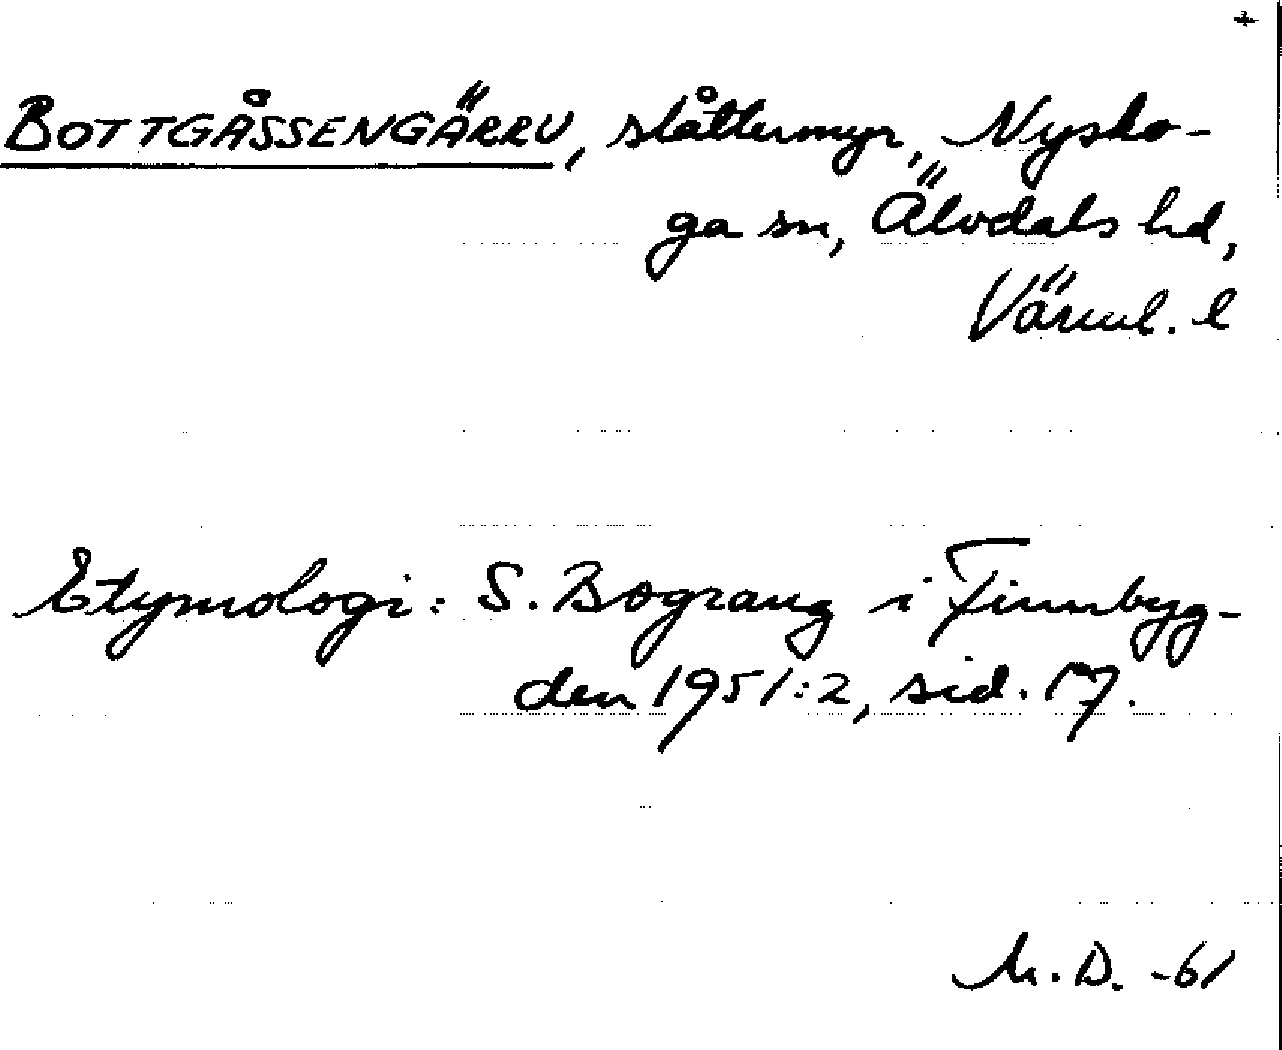 BOTTGÅSSENGÄRRU, slåttermyr, Nysko-
ga sn, Älvdals hd,
Värml. l
Etymologi: S. Bograng i Finnbyg-
den 1951:2, sid. 17.
M. D. -61